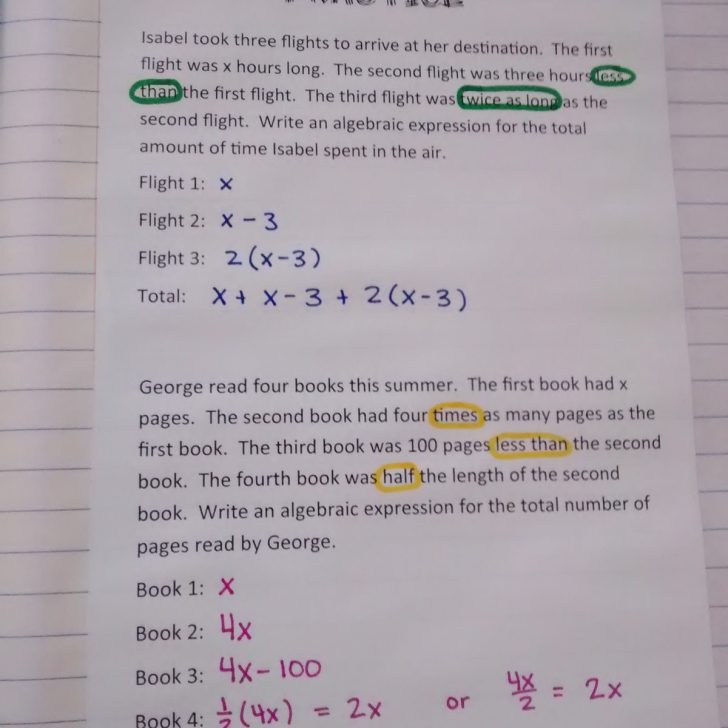 Isabel took three flights to arrive at her destination. The first
flight was x hours long. The second flight was three hours less
than the first flight. The third flight was twice as long as the
second flight. Write an algebraic expression for the total
amount of time Isabel spent in the air.
Flight 1: x
Flight 2: x - 3
Flight 3: 2(x-3)
Total: x + x - 3 + 2(x-3)
George read four books this summer. The first book had x
pages. The second book had four times as many pages as the
first book. The third book was 100 pages less than the second
book. The fourth book was half the length of the second
book. Write an algebraic expression for the total number of
pages read by George.
Book 1: x
Book 2: 4x
Book 3: 4x - 100
Book 4: 1/2 (4x) = 2x or 4x/2 = 2x